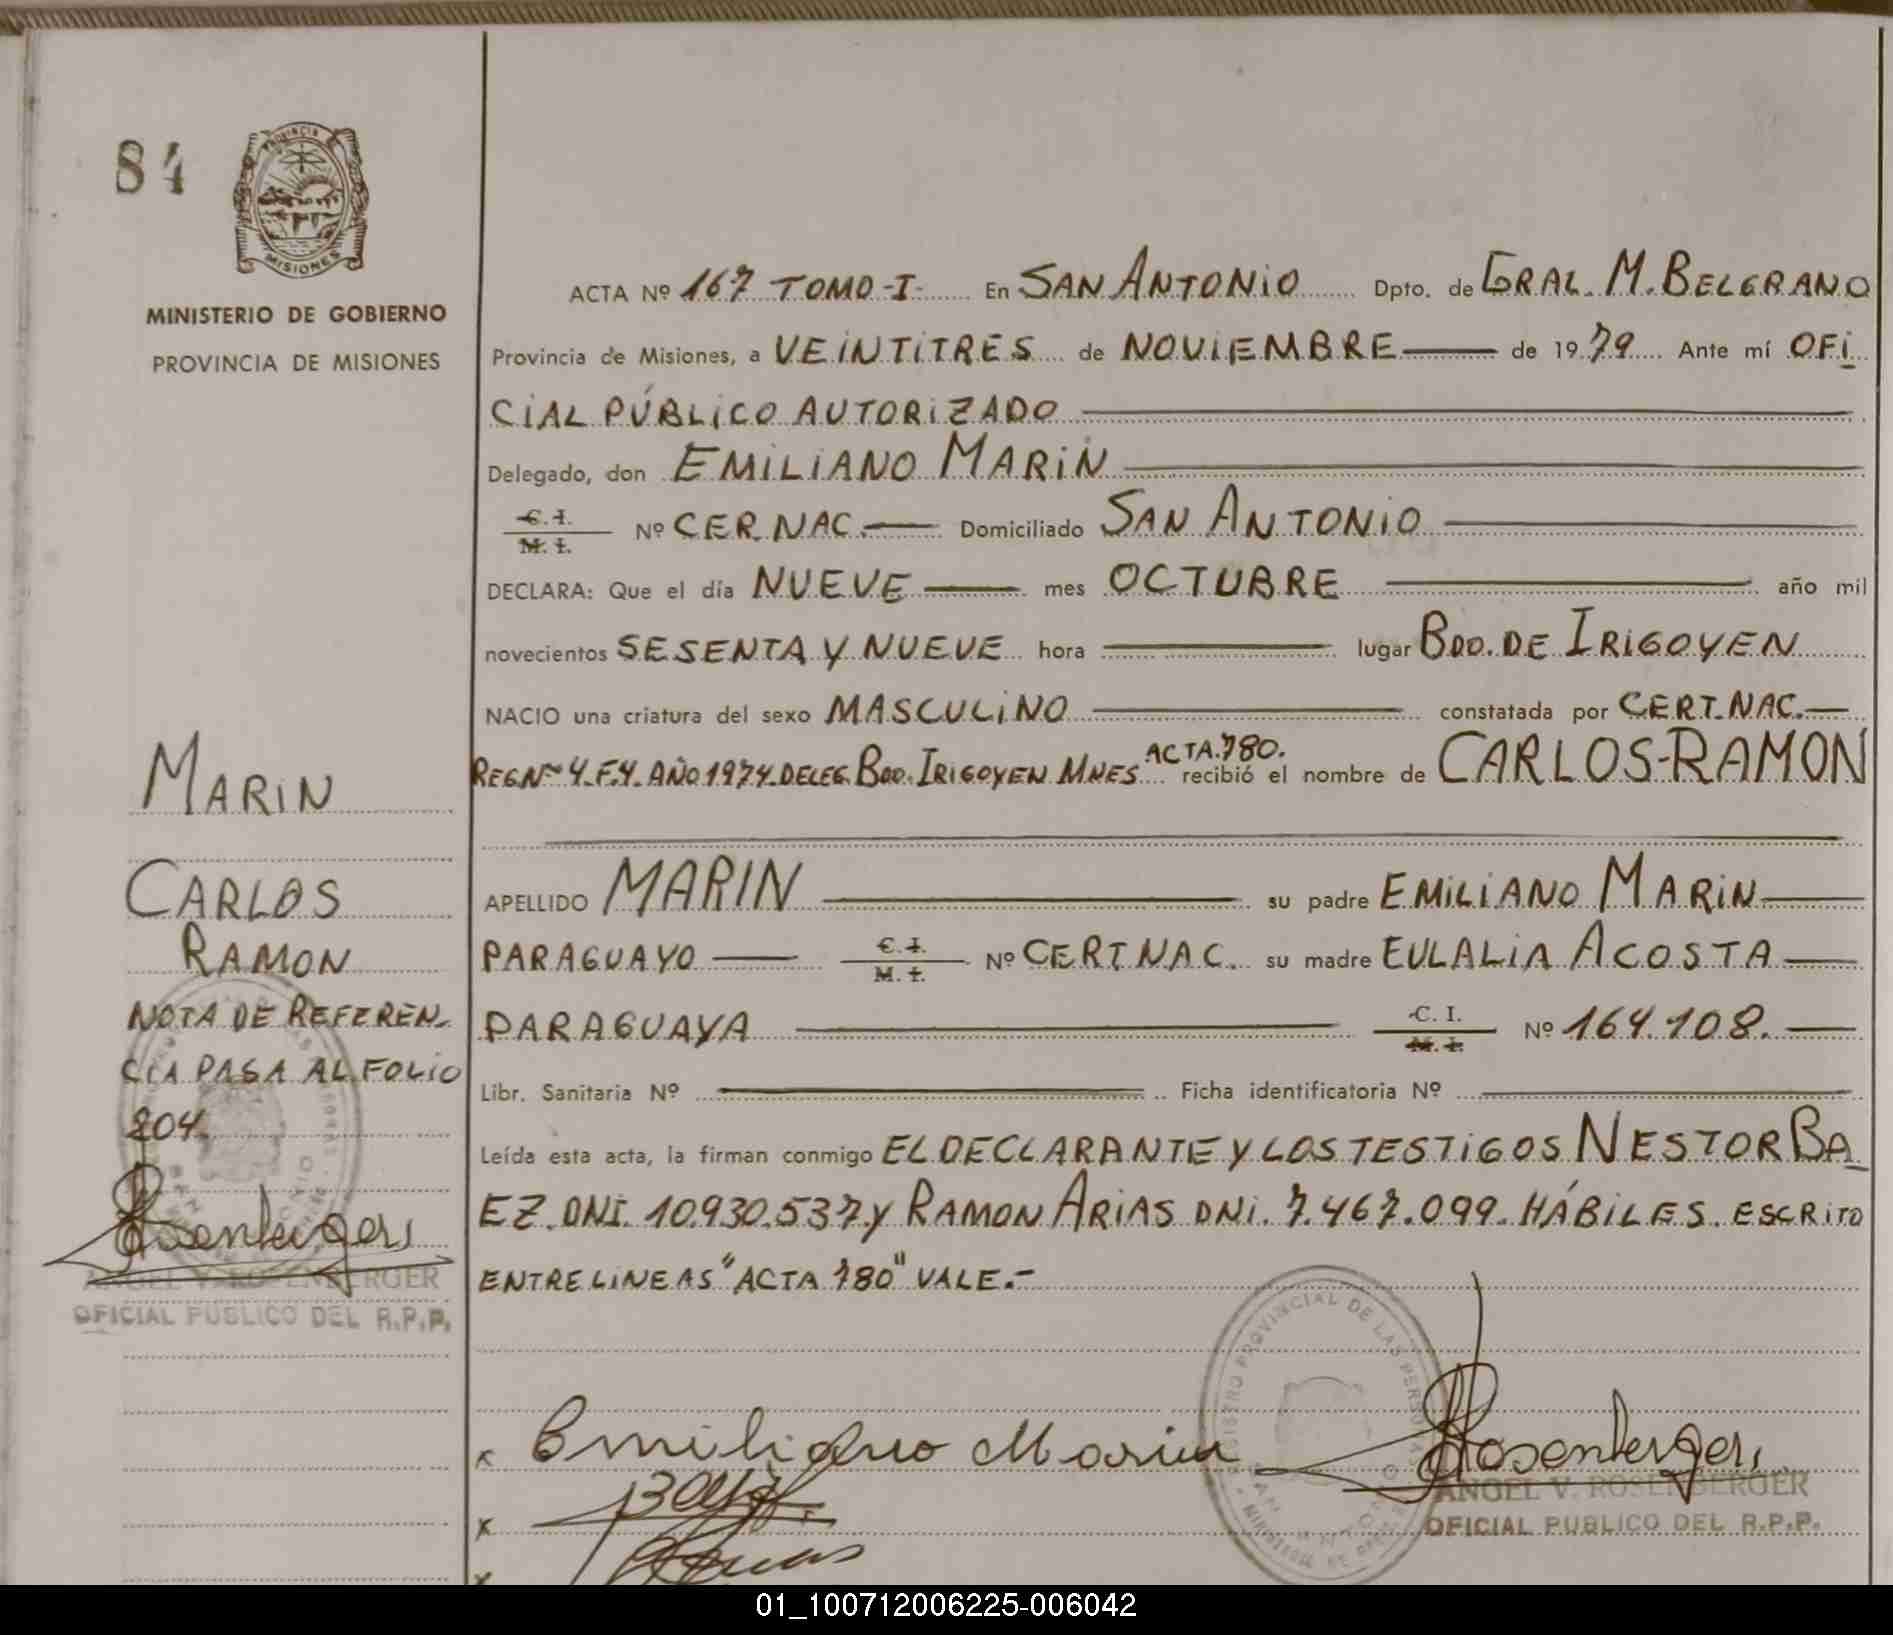 84
PROVINCIA
MISIONES
MINISTERIO DE GOBIERNO
PROVINCIA DE MISIONES
ACTA Nº 167 TOMO-I- En SAN ANTONIO Dpto. de GRAL. M. BELGRANO
Provincia de Misiones, a VEINTITRES de NOVIEMBRE de 1979 Ante mí OFI
CIAL PÚBLICO AUTORIZADO
Delegado, don EMILIANO MARIN
C. I.
M. I. Nº CER. NAC. Domiciliado SAN ANTONIO
DECLARA: Que el día NUEVE mes OCTUBRE año mil
novecientos SESENTA Y NUEVE hora lugar BDO. DE IRIGOYEN
NACIO una criatura del sexo MASCULINO constatada por CERT. NAC.
ACTA.780.
REG Nº 4. F.4. AÑO 1974. DELEG. BDO. IRIGOYEN MNES recibió el nombre de CARLOS-RAMON
APELLIDO MARIN su padre EMILIANO MARIN
PARAGUAYO C. I. M. I. Nº CERT NAC. su madre EULALIA ACOSTA
PARAGUAYA C. I. M. I. Nº 164.108.
Libr. Sanitaria Nº Ficha identificatoria Nº
Leída esta acta, la firman conmigo EL DECLARANTE Y LOS TESTIGOS NESTOR BA
EZ. DNI. 10.930.537 y RAMON ARIAS DNI. 7.467.099. HÁBILES. ESCRITO
ENTRE LINEAS "ACTA 780" VALE.-
MARIN
CARLOS
RAMON
NOTA DE REFEREN
CIA PASA AL FOLIO
204.
Rosenberger
ANGEL V. ROSENBERGER
OFICIAL PUBLICO DEL R.P.P.
x Emiliano Marin
x
x
REGISTRO PROVINCIAL DE LAS PERSONAS
SAN ANTONIO
Rosenberger
ANGEL V. ROSENBERGER
OFICIAL PUBLICO DEL R.P.P.
01_100712006225-006042